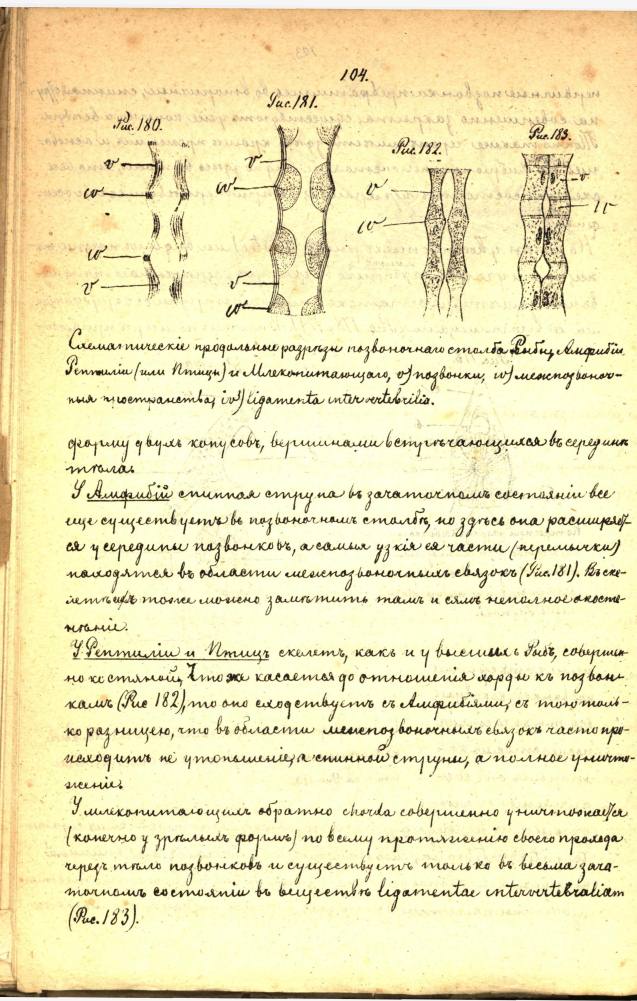 104.
Рис. 180.
Рис. 181.
Рис. 182.
Рис. 183.
v
w
w
v
v
w
v
w
v
w
v
Схематическіе продольные разрѣзы позвоночнаго столба Рыбы, Амфибіи
Рептиліи (или Птицы) и Млекопитающаго, v) позвонки, w) межпозвоноч-
ныя пространства; iv) ligamenta intervertebrilia.
форму двухъ конусовъ, вершинами встрѣчающихся въ серединѣ
тѣла.
У Амфибій спинная струна въ зачаточномъ состояніи все
еще существуетъ въ позвоночномъ столбѣ, но здѣсь она расширяет-
ся у середины позвонковъ, а самыя узкія ея части (перемычки)
находятся въ области межпозвоночныхъ связокъ (Рис. 181). Въ ске-
летѣ ихъ тоже можно замѣтить тамъ и сямъ неполное окосте-
нѣніе.
У Рептиліи и Птицъ скелетъ, какъ и у высшихъ Рыбъ, совершен-
но костяной, Что же касается до отношенія хорды къ позвон-
камъ (Рис 182), то оно сходствуетъ съ Амфибіями, съ тою толь-
ко разницею, что въ области межпозвоночныхъ связокъ часто про-
исходитъ не утоньшеніе спинной струны, а полное уничто-
женіе.
У млекопитающихъ обратно chorda совершенно уничтожается
(конечно у зрѣлыхъ формъ) по всему протяженію своего прохода
черезъ тѣло позвонковъ и существуетъ только въ весьма зача-
точномъ состояніи въ веществѣ ligamentae intervertebraliam
(Рис. 183).